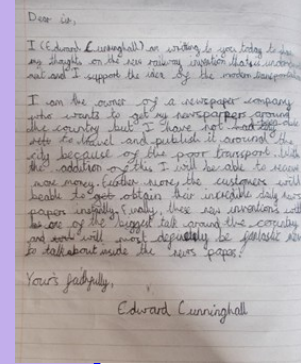 Dear Sir,
I (Edward Cunninghall) am writing to you today to share
my thoughts on the new railway invention that is
out and I support the idea of the modern transportation
I am the owner of a newspaper company
who wants to get my newspaper around
the country but I have not had
to travel and publish it around the
city because of the poor transport. With
the addition of this I will be able to receive
more money. Further more, the customers will
beable to get obtain their incredible daily news
papers instantly. Finally, these new inventions will
be one of the biggest talk around the country
and will most be fantastic news
to talk about inside the news paper.
Yours faithfully,
Edward Cunninghall